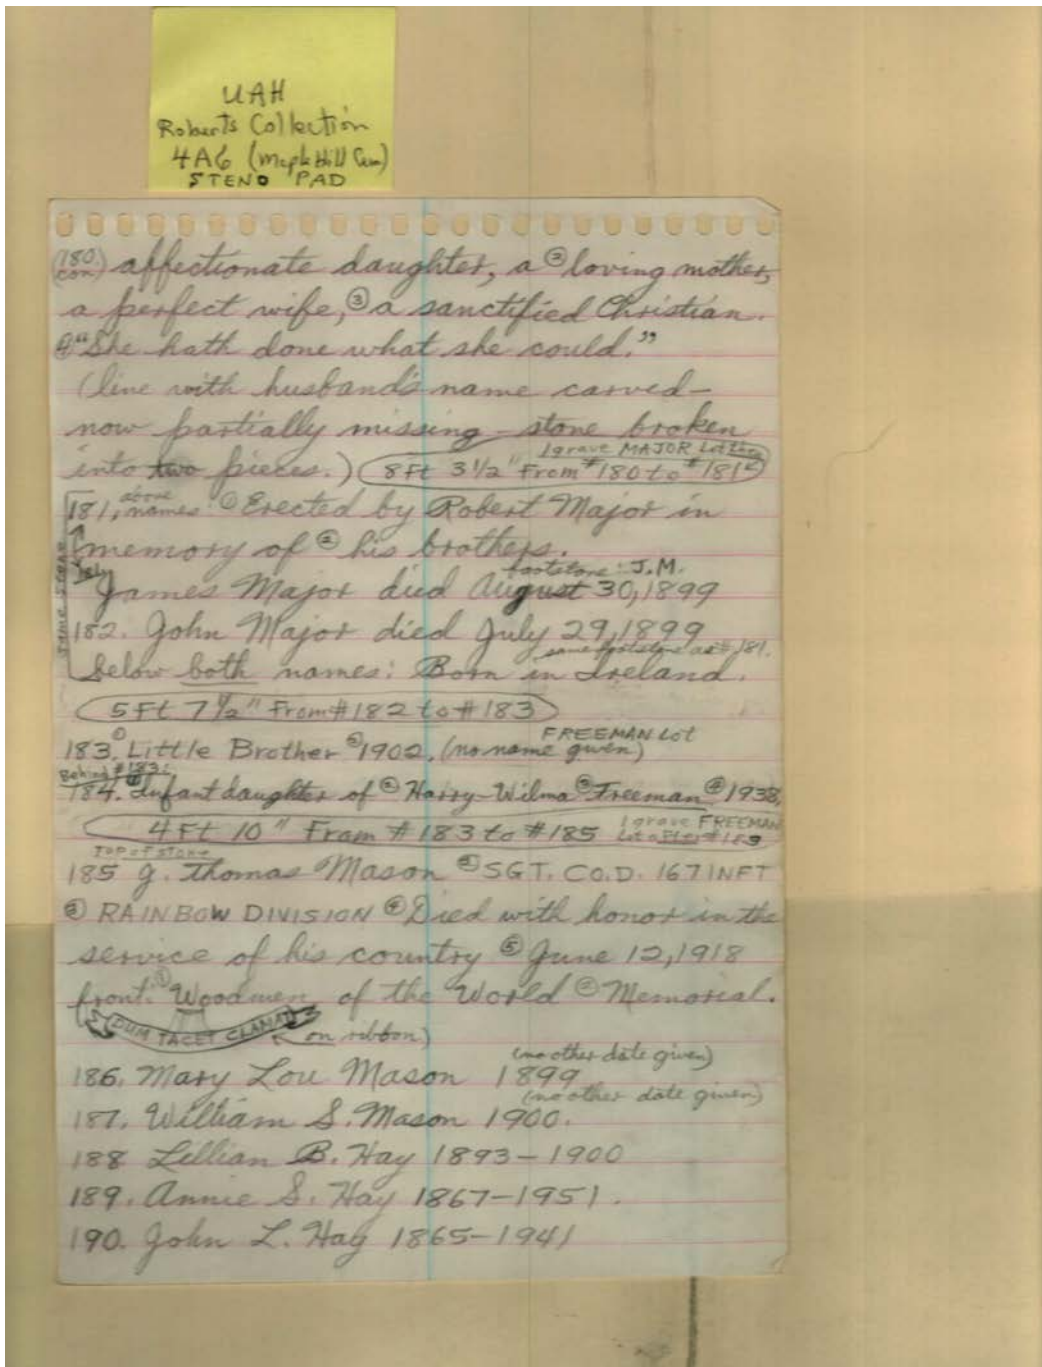 UAH
Roberts Collection
4A6 (Maple Hill Cem)
STENO PAD
(180 con.) affectionate daughter, a ② loving mother,
a perfect wife, ③ a sanctified Christian.
④ "She hath done what she could."
(line with husband's name carved-
now partially missing - stone broken
1 grave MAJOR Lot
into two pieces.) (8 Ft 3 1/2" From #180 to #181)
181, above names: ① Erected by Robert Major in
memory of ② his brothers.
footstone: J.M.
James Major died August 30, 1899
same stone
182. John Major died July 29, 1899
same footstone as #181.
below both names: Born in Ireland.
5 Ft 7 1/2" From #182 to #183
FREEMAN Lot
183. ① Little Brother ② 1902. (no name given)
Behind #183:
184. ① Infant daughter of ② Harry-Wilma ③ Freeman ④ 1938.
4 Ft 10" From #183 to #185
1 grave FREEMAN
Lot after #183
Top of stone
185 J. Thomas Mason ② SGT. CO. D. 167 INFT
③ RAINBOW DIVISION ④ Died with honor in the
service of his country ⑤ June 12, 1918
front: ① Woodmen of the World ② Memorial.
DUM TACET CLAMAT
on ribbon)
(no other date given)
186. Mary Lou Mason 1899
(no other date given)
187. William S. Mason 1900.
188 Lillian B. Hay 1893-1900
189. Annie S. Hay 1867-1951.
190. John L. Hay 1865-1941